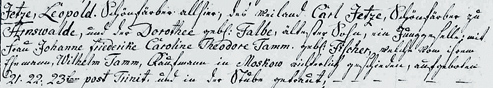 Jetze, Leopold. Schönfärber allhier, des weiland Carl Jetze, Schönfärber zu
Arnswalde, und der Dorothee gebh. Falbe, ältester Sohn, ein Junggeselle; mit
Frau Johanne Friederike Caroline Theodore Tamm. gebh. Fischer, welche von ihrem
Ehemann, Wilhelm Tamm, Kaufmann in Moskow gerichtlich geschieden, aufgeboten
21. 22. 23 post Trinit. und in der Stube getraut.